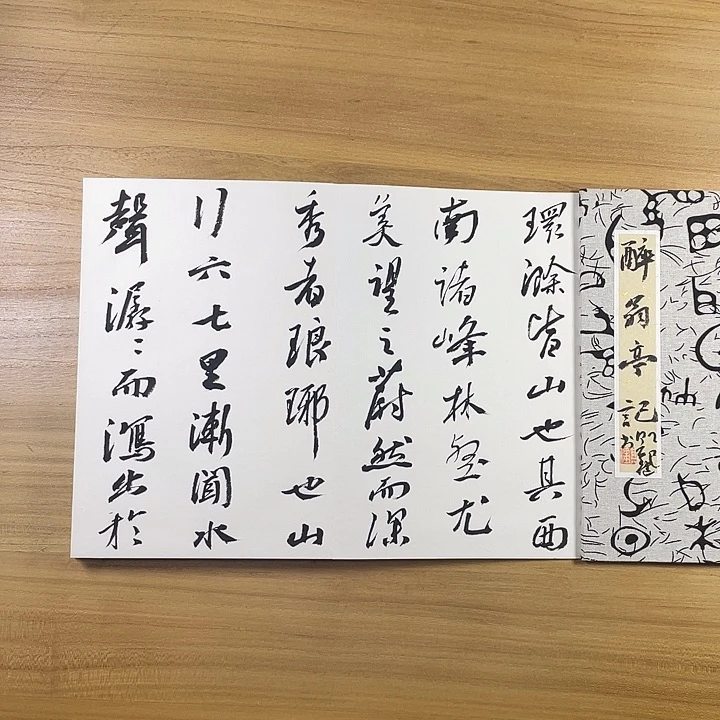 醉翁亭記
環滁皆山也其西
南諸峰林壑尤
美望之蔚然而深
秀者琅琊也山
行六七里漸聞水
聲潺〻而瀉出於